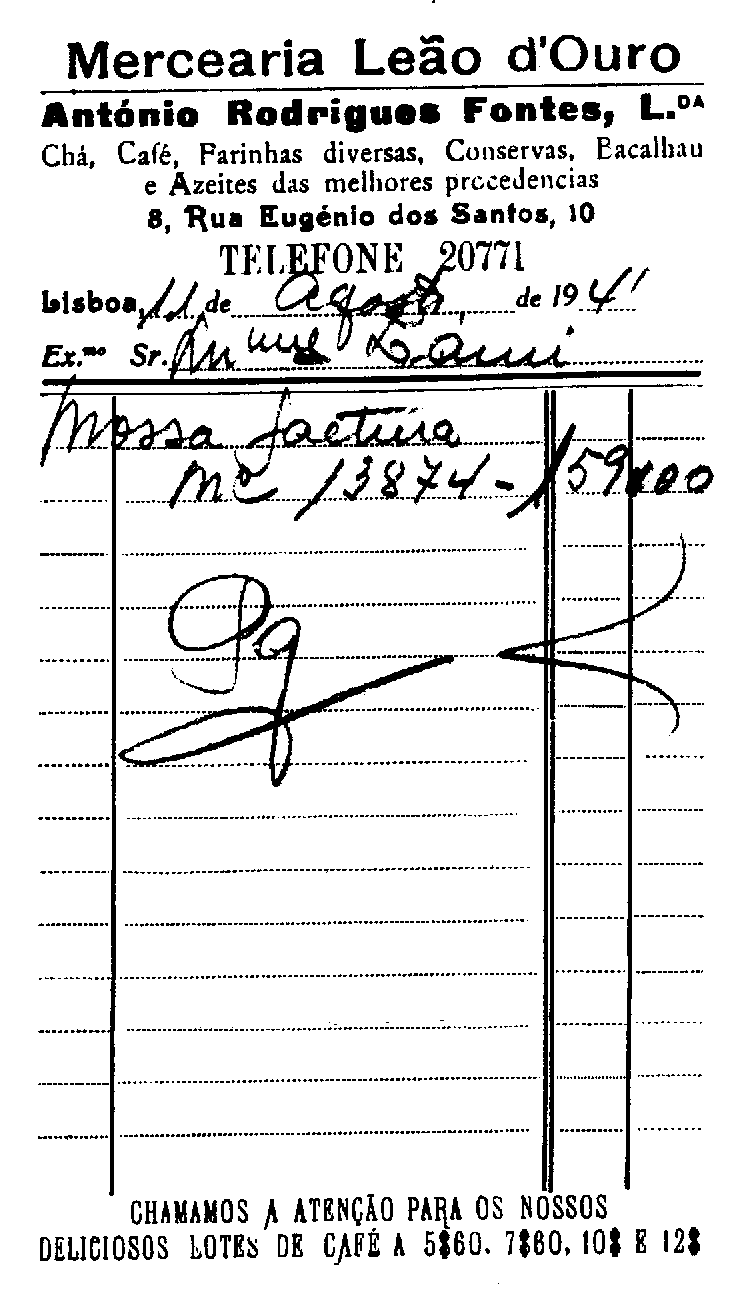 Mercearia Leão d'Ouro
António Rodrigues Fontes, L.DA
Chá, Café, Farinhas diversas, Conservas, Bacalhau
e Azeites das melhores precedencias
8, Rua Eugénio dos Santos, 10
TELEFONE 20771
Lisboa, 11 de Agosto de 1941
Ex.mo Sr.
Nossa factura
Nº 13874 - 159$00
Pg
CHAMAMOS A ATENÇÃO PARA OS NOSSOS
DELICIOSOS LOTES DE CAFÉ A 5$60. 7$60, 10$ E 12$